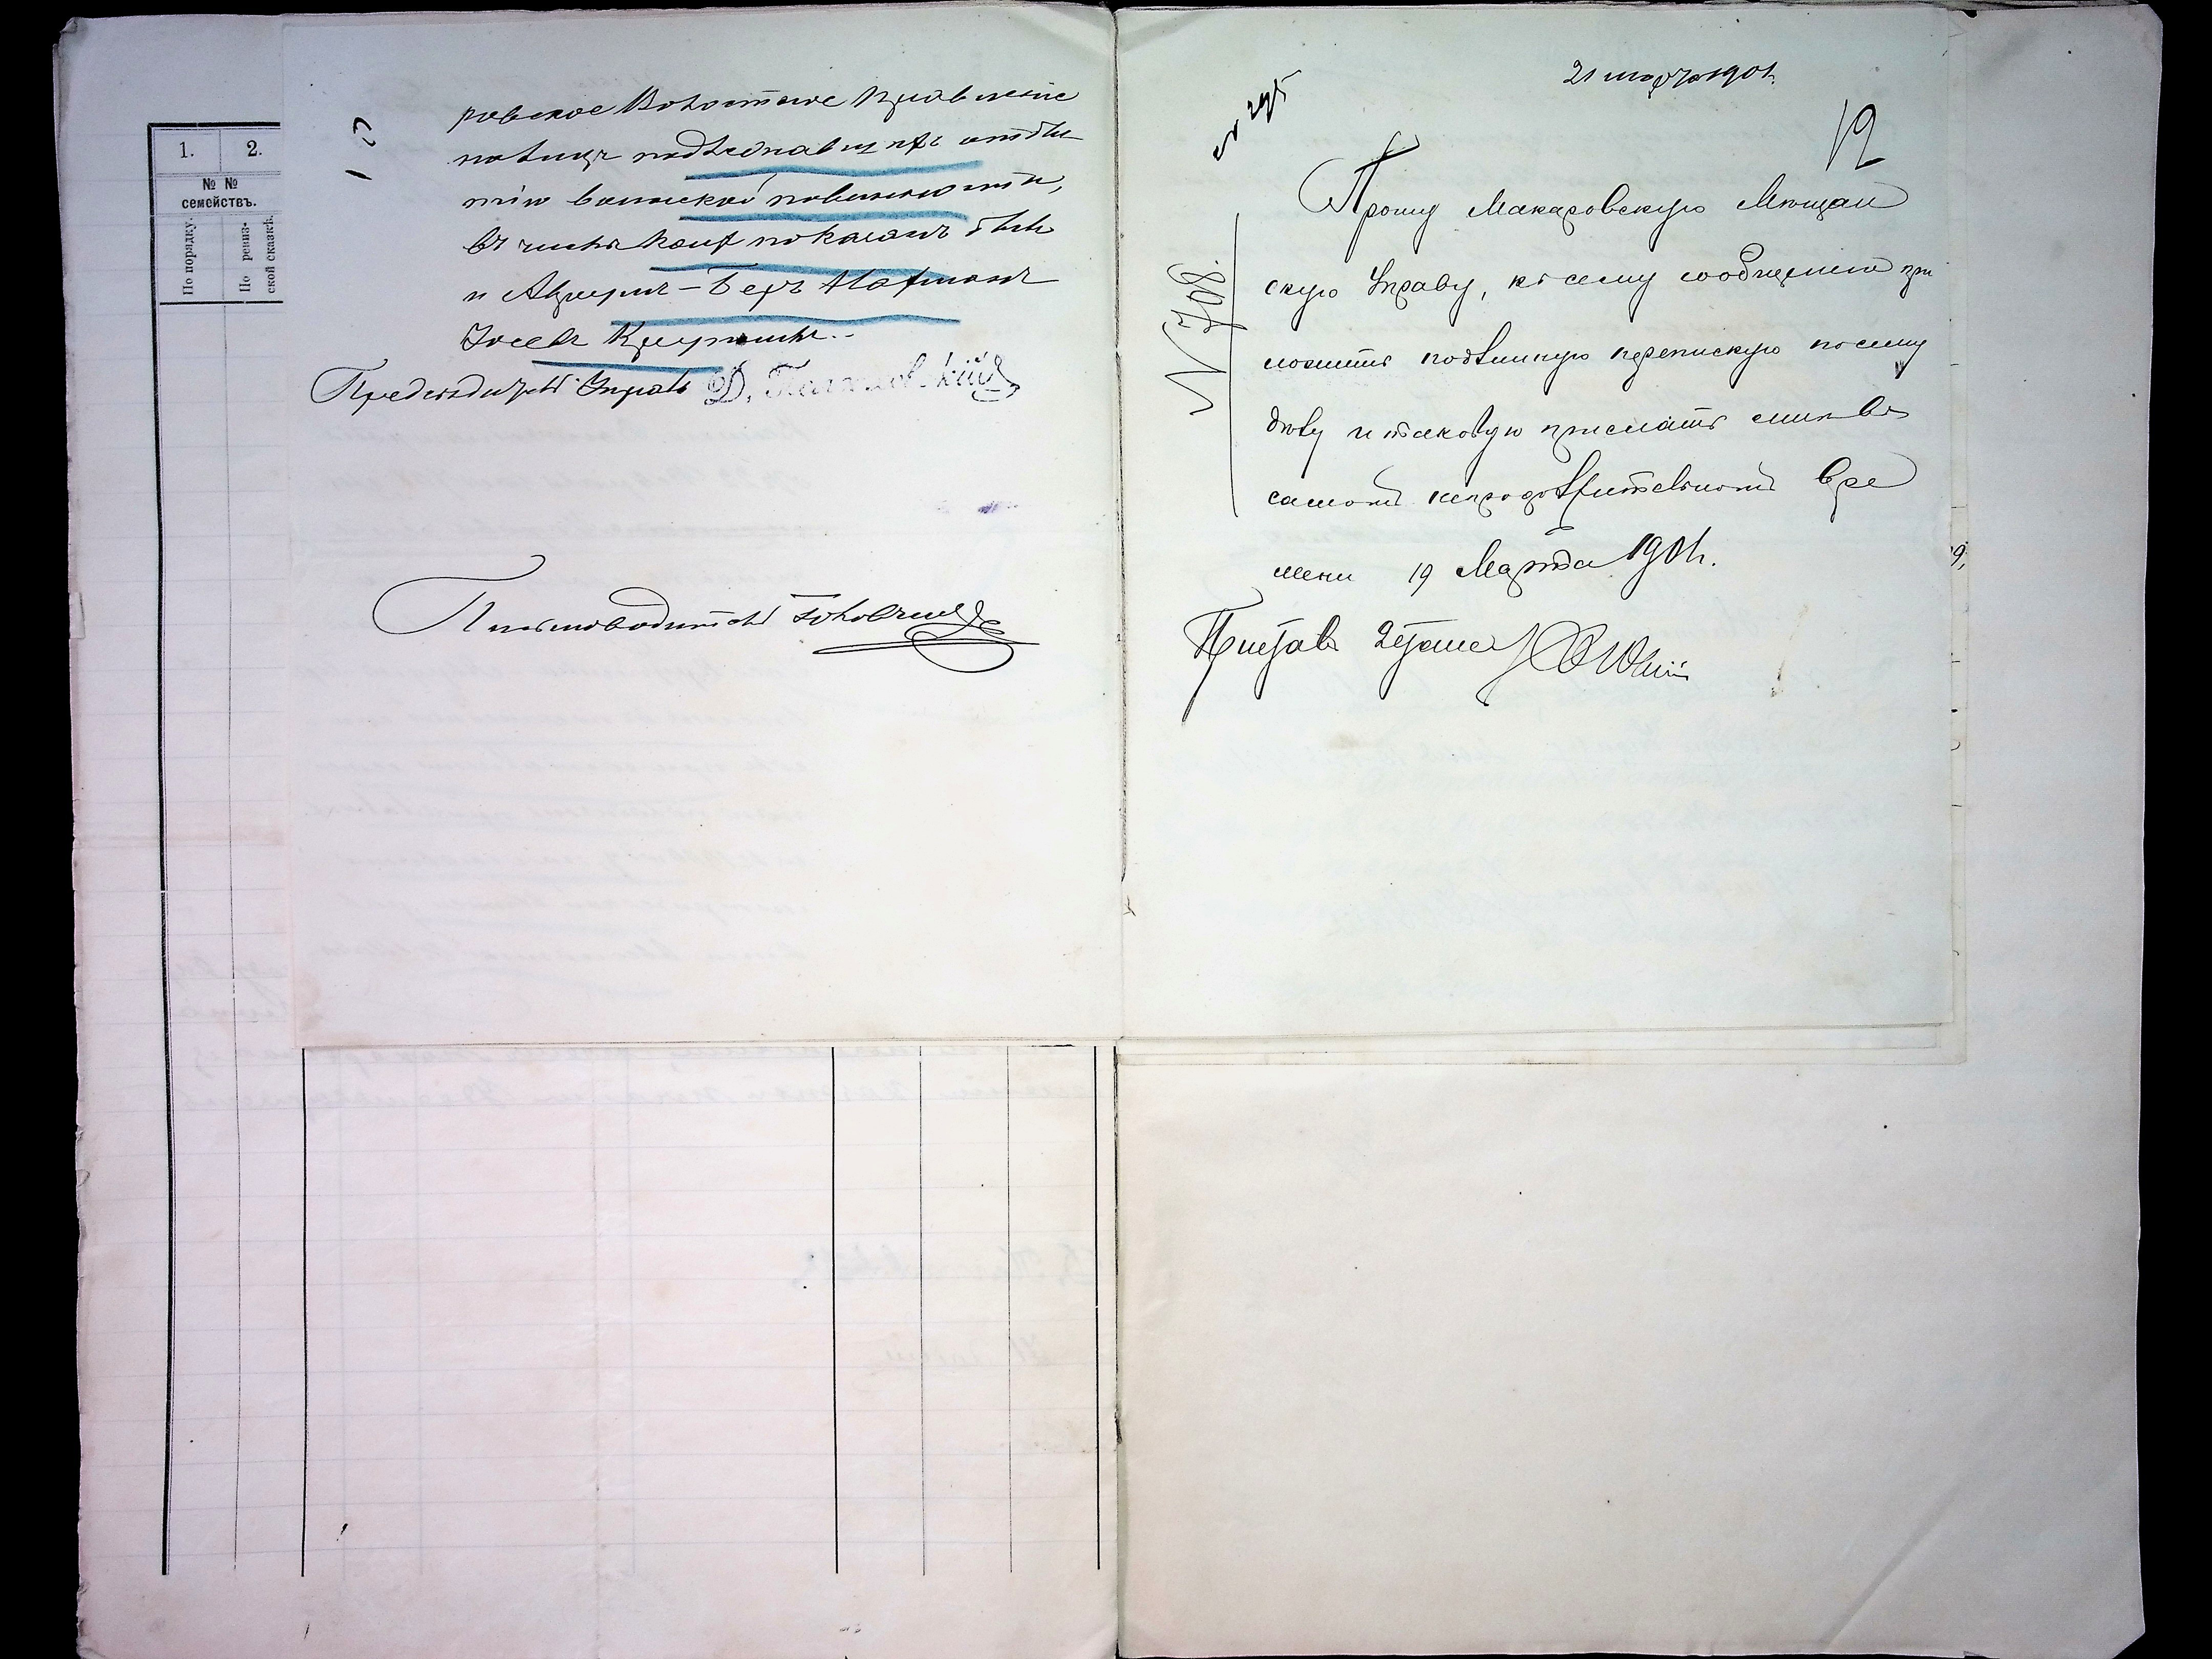 1.
2.
№ №
семействъ.
По порядку.
По ревиз-
ской сказкѣ.
ровское Волостное Правленіе
о лицахъ подлежавшихъ отбы
тію воинской повинности,
въ числѣ коихъ показанъ былъ
и Аврумъ-Беръ
Предсѣдатель Управы Д.
Письмоводитель
21 марта 1901.
12
№ 708.
Прошу Макаровскую Мѣщан
скую Управу, къ сему сообщенію при
ложить подлинную переписку по сему
дѣлу и таковую прислать мнѣ въ
самомъ непродолжительномъ вре
мени 19 Марта 1901 г.
Приставъ 2 стана